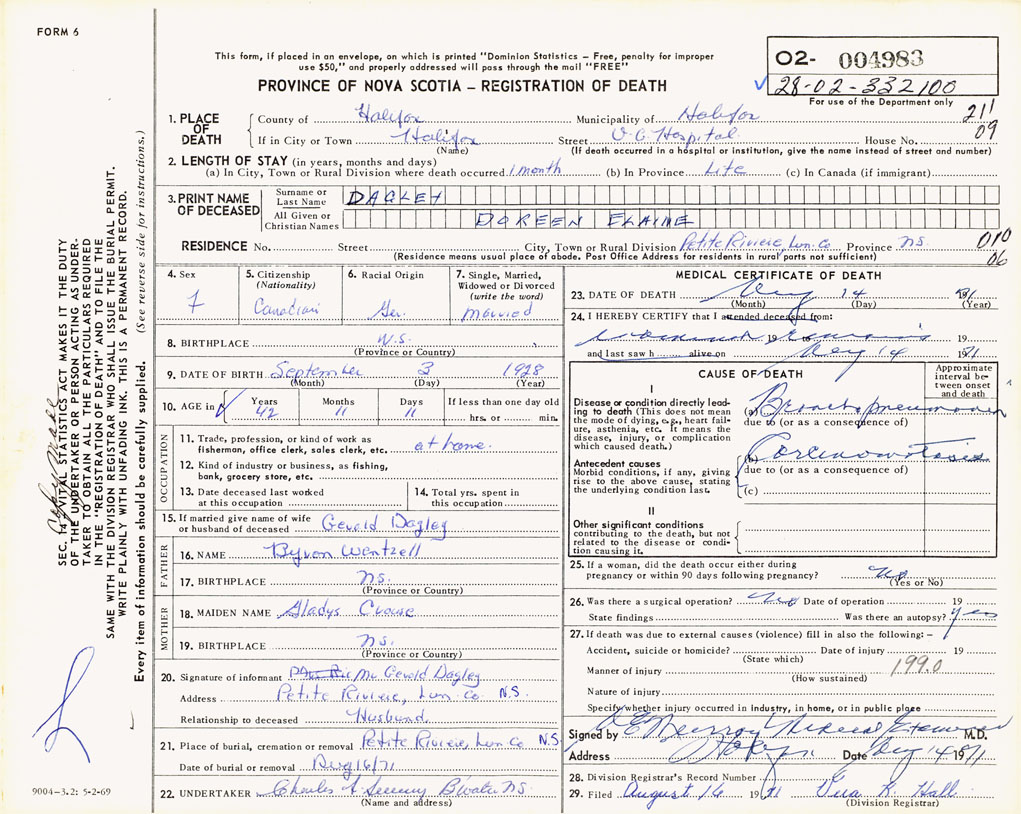 FORM 6
This form, if placed in an envelope, on which is printed "Dominion Statistics – Free, penalty for improper
use $50," and properly addressed will pass through the mail "FREE"
PROVINCE OF NOVA SCOTIA – REGISTRATION OF DEATH
02- 004983
28-02-332100
For use of the Department only
211
09
1. PLACE OF DEATH
County of Halifax Municipality of Halifax
If in City or Town Halifax Street V. G. Hospital House No.
(Name) (If death occurred in a hospital or institution, give the name instead of street and number)
2. LENGTH OF STAY (in years, months and days)
(a) In City, Town or Rural Division where death occurred 1 month (b) In Province Life (c) In Canada (if immigrant)
3. PRINT NAME OF DECEASED
Surname or Last Name DAGLEY
All Given or Christian Names DOREEN ELAINE
RESIDENCE No. Street City, Town or Rural Division Petite Riviere, Lun. Co. Province N.S. 010
06
(Residence means usual place of abode. Post Office Address for residents in rural parts not sufficient)
4. Sex
F
5. Citizenship
(Nationality)
Canadian
6. Racial Origin
Ger.
7. Single, Married,
Widowed or Divorced
(write the word)
Married
8. BIRTHPLACE N.S.
(Province or Country)
9. DATE OF BIRTH September 3 1928
(Month) (Day) (Year)
10. AGE in Years Months Days If less than one day old
42 11 11 hrs. or min.
OCCUPATION
11. Trade, profession, or kind of work as
fisherman, office clerk, sales clerk, etc. at home.
12. Kind of industry or business, as fishing,
bank, grocery store, etc.
13. Date deceased last worked
at this occupation
14. Total yrs. spent in
this occupation
15. If married give name of wife
or husband of deceased Gerald Dagley
FATHER
16. NAME Byron Wentzell
17. BIRTHPLACE N.S.
(Province or Country)
MOTHER
18. MAIDEN NAME Gladys Crouse
19. BIRTHPLACE N.S.
(Province or Country)
20. Signature of informant Mr Gerald Dagley
Address Petite Riviere, Lun. Co. N.S.
Relationship to deceased Husband
21. Place of burial, cremation or removal Petite Riviere, Lun Co N.S.
Date of burial or removal Aug 16/71
22. UNDERTAKER Charles A. B'water N.S.
(Name and address)
MEDICAL CERTIFICATE OF DEATH
23. DATE OF DEATH Aug 14 1971
(Month) (Day) (Year)
24. I HEREBY CERTIFY that I attended deceased from:
19 19
and last saw h alive on Aug 14 1971
CAUSE OF DEATH
Approximate
interval be-
tween onset
and death
I
Disease or condition directly lead-
ing to death (This does not mean
the mode of dying, e.g., heart fail-
ure, asthenia, etc. It means the
disease, injury, or complication
which caused death.)
(a) Bronchopneumonia
due to (or as a consequence of)
Antecedent causes
Morbid conditions, if any, giving
rise to the above cause, stating
the underlying condition last.
(b) Carcinomatosis
due to (or as a consequence of)
(c)
II
Other significant conditions
contributing to the death, but not
related to the disease or condi-
tion causing it.
25. If a woman, did the death occur either during
pregnancy or within 90 days following pregnancy? No
(Yes or No)
26. Was there a surgical operation? No Date of operation 19
State findings Was there an autopsy? Yes
27. If death was due to external causes (violence) fill in also the following: –
Accident, suicide or homicide? Date of injury 19
(State which)
Manner of injury 199.0
(How sustained)
Nature of injury
Specify whether injury occurred in industry, in home, or in public place
Signed by Murray Medical Examiner M.D.
Address Halifax Date Aug 14 1971
28. Division Registrar's Record Number
29. Filed August 16 1971 Vera R. Hall
(Division Registrar)
SEC. 14 VITAL STATISTICS ACT MAKES IT THE DUTY
OF THE UNDERTAKER OR PERSON ACTING AS UNDER-
TAKER TO OBTAIN ALL THE PARTICULARS REQUIRED
IN THE "REGISTRATION OF DEATH" AND TO FILE THE
SAME WITH THE DIVISION REGISTRAR WHO SHALL ISSUE THE BURIAL PERMIT.
WRITE PLAINLY WITH UNFADING INK. THIS IS A PERMANENT RECORD.
Every item of information should be carefully supplied. (See reverse side for instructions.)
9004–3.2: 5-2-69